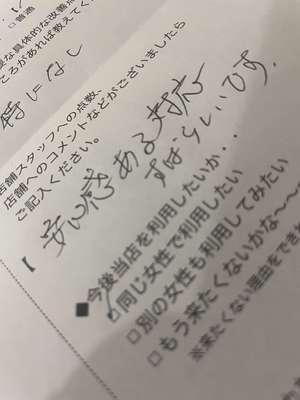 □普通
な具体的な改善点
ころがあれば教えてく
特になし
店舗スタッフへの点数、
店舗へのコメントなどがございましたら
ご記入ください。
【
安心感ある対応
すばらしいです。
■今後当店を利用したいか・・
□同じ女性で利用したい
□別の女性も利用してみたい
□もう来たくないかな〜〜
※来たくない理由をでき